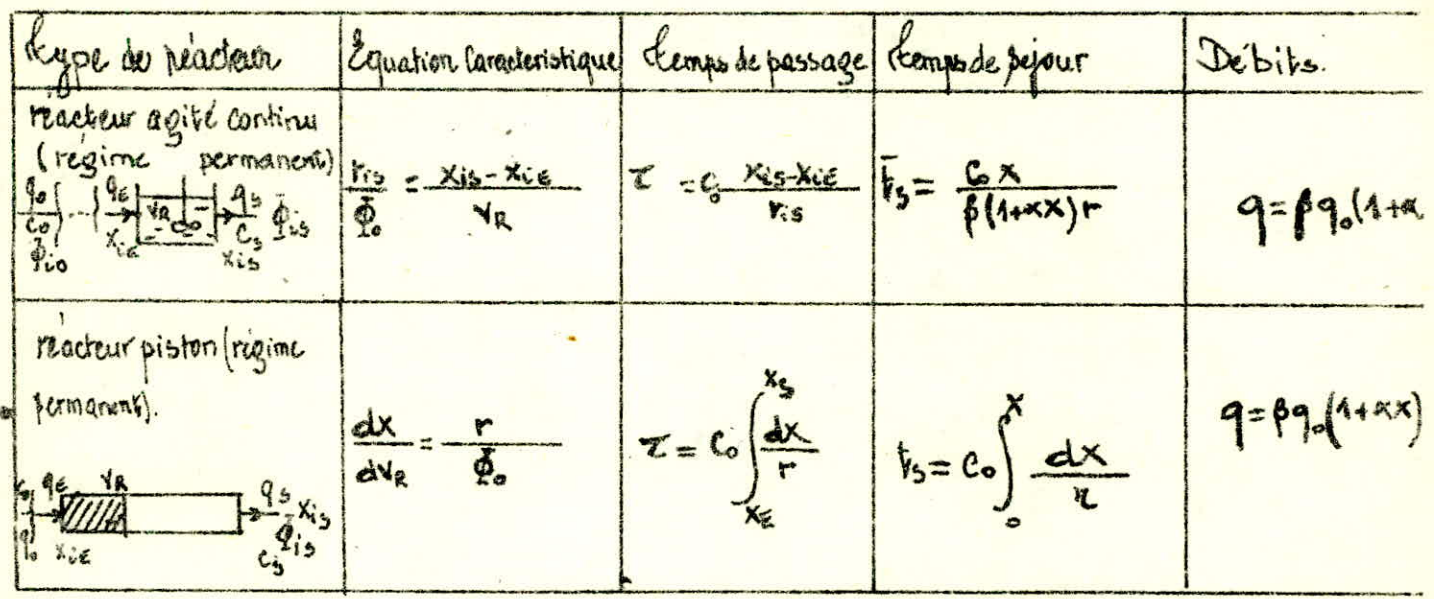 Type de réacteur
Equation Caracteristique
temps de passage
temps de sejour
Débits.
réacteur agité continu
(régime permanent)
q₀ q_E q_s Φ_is
C₀ V_R C_s
Φ_i0 X_iE X_is
r_is/Φ₀ = (X_is - X_iE)/V_R
τ = C₀ (X_is - X_iE)/r_is
t̄_s = C₀X/(β(1+αX)r)
q = βq₀(1+α
réacteur piston (régime
permanent).
q_E V_R q_s X_is
q₀ X_iE C_is Φ_is
dX/dV_R = r/Φ₀
τ = C₀ ∫_{X_E}^{X_s} dX/r
t_s = C₀ ∫_0^X dX/r
q = βq₀(1+αX)